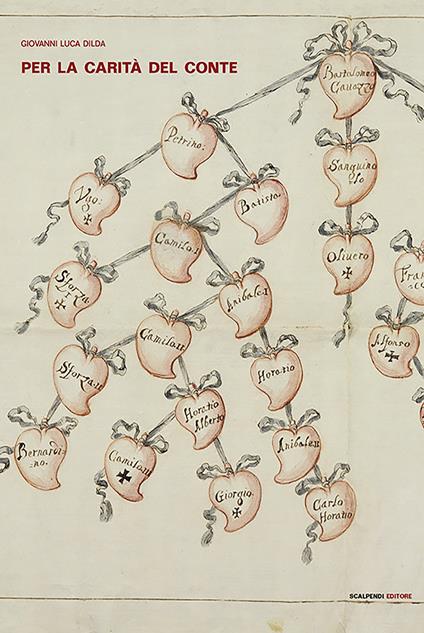 GIOVANNI LUCA DILDA
PER LA CARITÀ DEL CONTE
Bartolomeo
Gavazzo
Petrino:
Sanguino
lo
Ugo:
Batista
Camilo.I
Olivero
Sforza
I
Anibale.I
Fran
Camilo.II
Alfonso
Sforza.II
Horatio
Horatio
Alberto
Bernardi
=no.
Anibale.II
Camilo.III
Giorgio:
Carlo
Horatio
SCALPENDI EDITORE